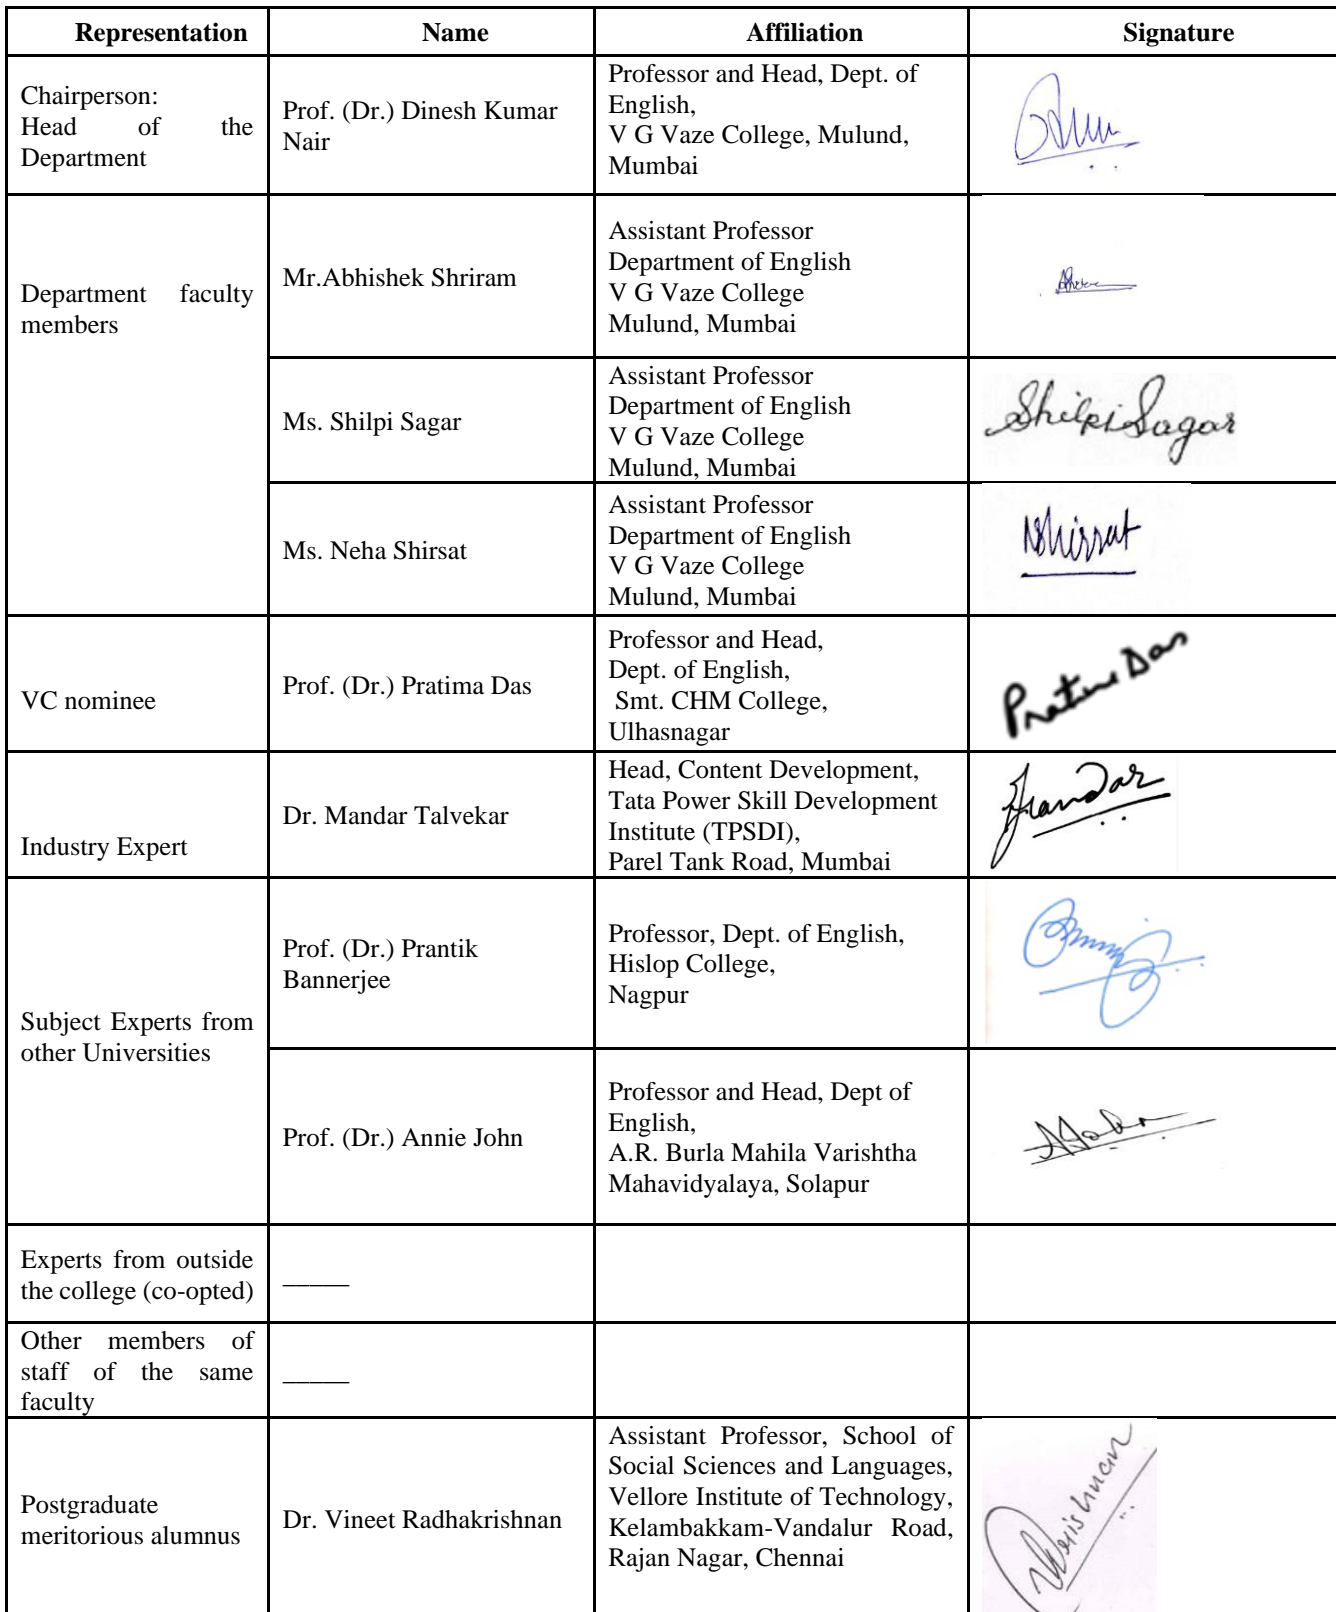 Representation Name Affiliation Signature
Chairperson:
Head of the
Department
Prof. (Dr.) Dinesh Kumar
Nair
Professor and Head, Dept. of
English,
V G Vaze College, Mulund,
Mumbai
Department faculty
members
Mr.Abhishek Shriram
Assistant Professor
Department of English
V G Vaze College
Mulund, Mumbai
Ms. Shilpi Sagar
Assistant Professor
Department of English
V G Vaze College
Mulund, Mumbai
Shilpi Sagar
Ms. Neha Shirsat
Assistant Professor
Department of English
V G Vaze College
Mulund, Mumbai
NShirsat
VC nominee
Prof. (Dr.) Pratima Das
Professor and Head,
Dept. of English,
Smt. CHM College,
Ulhasnagar
Pratima Das
Industry Expert
Dr. Mandar Talvekar
Head, Content Development,
Tata Power Skill Development
Institute (TPSDI),
Parel Tank Road, Mumbai
Mandar
Subject Experts from
other Universities
Prof. (Dr.) Prantik
Bannerjee
Professor, Dept. of English,
Hislop College,
Nagpur
Prof. (Dr.) Annie John
Professor and Head, Dept of
English,
A.R. Burla Mahila Varishtha
Mahavidyalaya, Solapur
Experts from outside
the college (co-opted)
_____
Other members of
staff of the same
faculty
_____
Postgraduate
meritorious alumnus
Dr. Vineet Radhakrishnan
Assistant Professor, School of
Social Sciences and Languages,
Vellore Institute of Technology,
Kelambakkam-Vandalur Road,
Rajan Nagar, Chennai